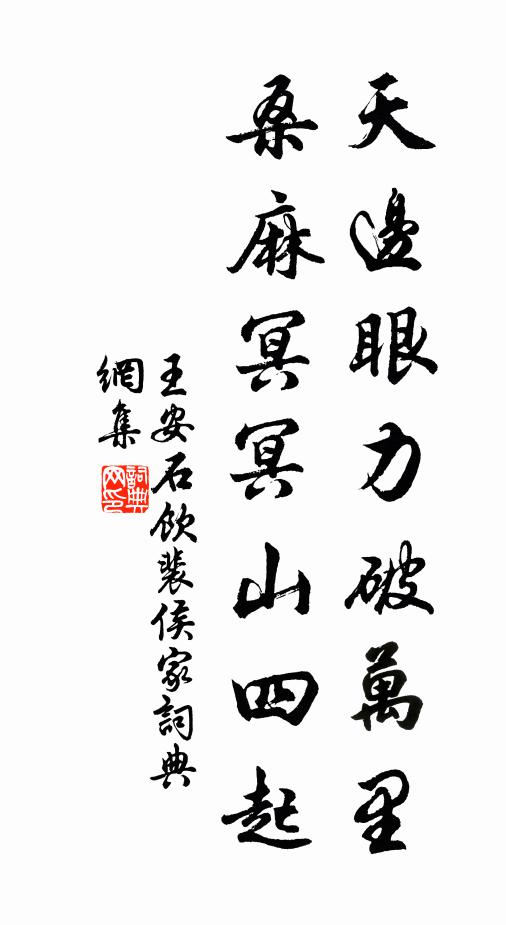 天邊眼力破萬里
桑麻冥冥山四起
王安石飲裴侯家詞典
網集
詞典网印